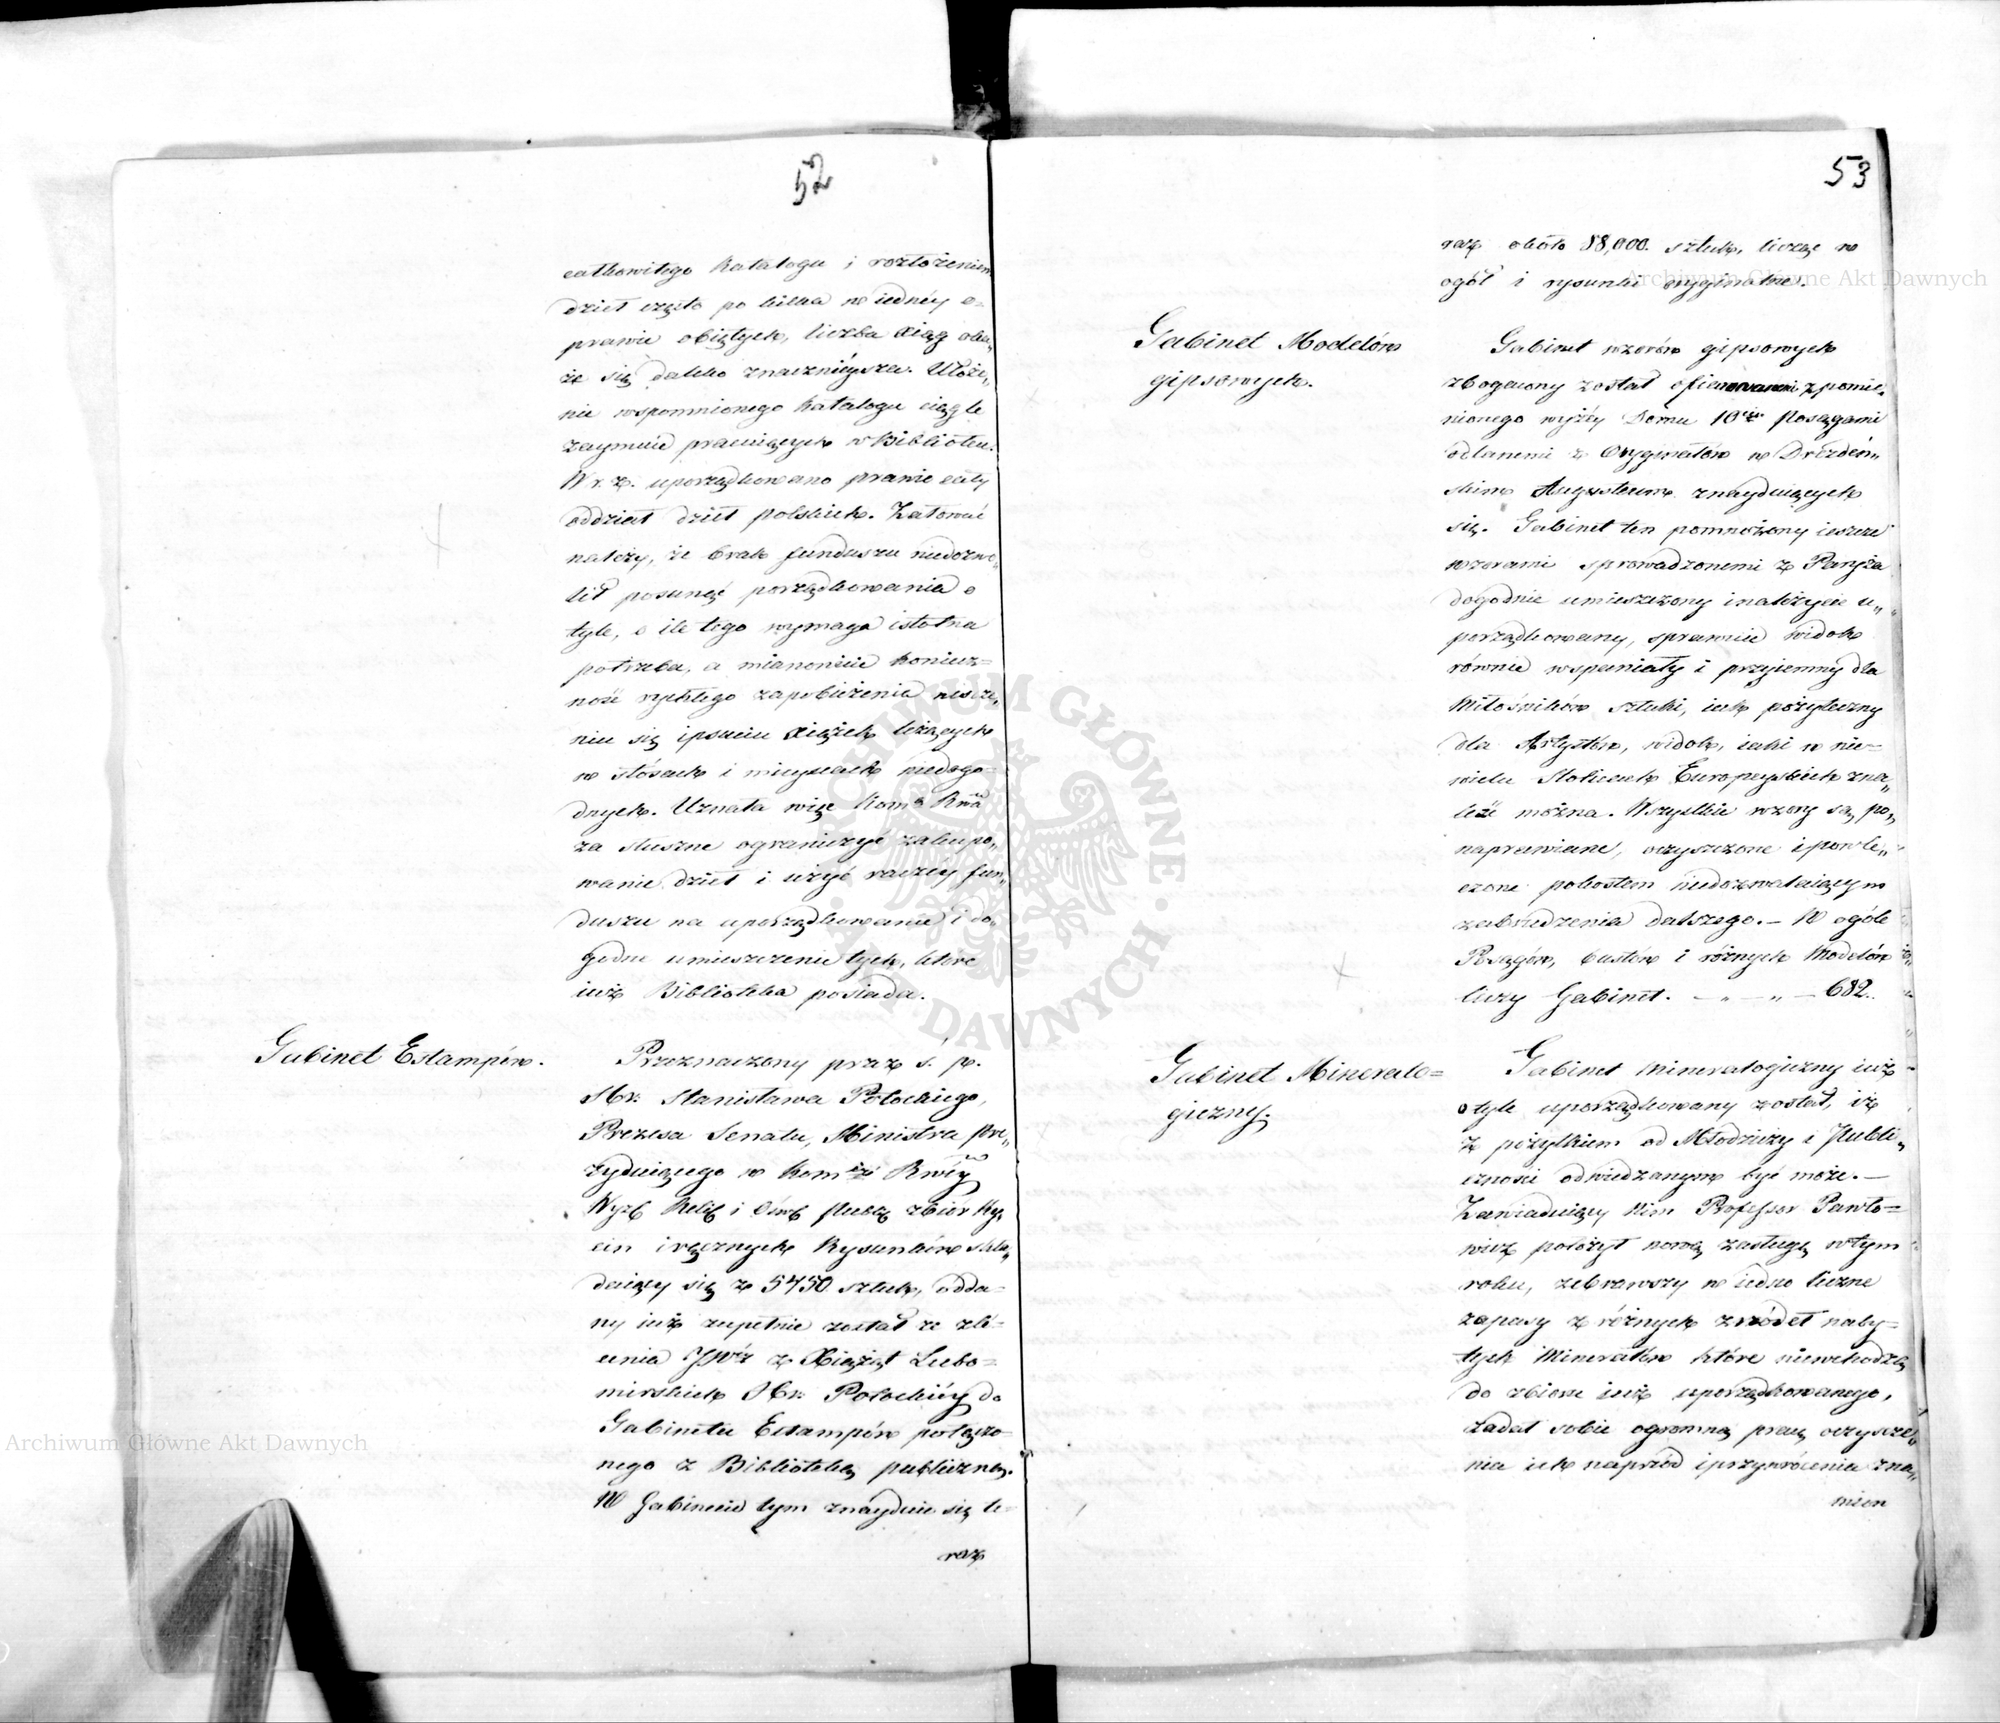 52
całkowitego Katalogu i roztożeniem
dzieł często po kilka w iednéy o=
prawie obiętych, liczba xiąg oka„
że się daleko znacznieysza. Ułoże„
nie wspomnionego Katalogu ciągle
zaymuie pracuiących w Bibliotece.
W r. z. uporządkowano prawie cały
oddział dzieł polskich. Żałować
należy, że brak funduszu niedozwo„
lił posunąć porządkowania o
tyle, o ile tego wymaga istotna
potrzeba, a mianowicie koniecz=
ność rychłego zapobieżenia niszcze„
niu się i psuciu xiążek leżących
w stósach i mieyscach niedogo=
dnych. Uznała więc Komã Rwã
za słuszne ograniczyć zakupo„
wanie dzieł i użyć raczéy fun„
duszu na uporządkowanie i do„
godne umieszczenie tych, które
iuż Biblioteka posiada.
Gabinet Estampów.
Przeznaczony przez ś. p.
Hr. Stanisława Potockiego,
Prezesa Senatu, Ministra Pre„
zyduiącego w Komㇱsyi Rwéy
Wyzń Relig i Ośw. Publ. zbiór Ry„
cin i ręcznych Rysunków skła„
daiący się z 5750 sztuk, odda=
ny iuż zupełnie został ze zle=
cenia JWéy z Xiążąt Lubo=
mirskich Hr. Potockiéy do
Gabinetu Estampów połączo=
nego z Biblioteką publiczną.
W Gabinecie tym znayduie się te=
raz
53
raz około 88,000. sztuk, licząc w
ogół i rysunki oryginalne.
Gabinet Modelów
gipsowych.
Gabinet wzorów gipsowych
zbogacony został ofiarowanemi z pomie„
nionego wyżéy Domu 10cią Posągami
odlanemi z Oryginałów w Drezdeń„
skim Augusteum znayduiących
się. Gabinet ten pomnożony ieszcze
wzorami sprowadzonemi z Paryża
dogodnie umieszczony i należycie u„
porządkowany, sprawuie widok
równie wspaniały i przyiemny dla
Miłośników sztuki, iak pożyteczny
dla Artystów, widok, iaki w nie=
wielu Stolicach Europeyskich zna„
leźć można. Wszystkie wzory są po„
naprawiane, oczyszczone i powle„
czone pokostem niedozwalaiącym
zabrudzenia dalszego. — W ogóle
Posągów, bustów i różnych Modelów
liczy Gabinet. — „ — „ — 682.
Gabinet Mineralo=
giczny.
Gabinet Mineralogiczny iuż
o tyle uporządkowany został, iż
z pożytkiem od Młodzieży i Publi„
czności odwiedzanym być może. —
Zawiaduiący Nim Professor Pawło=
wicz położył nową zasługę w tym
roku, zebrawszy w iedno liczne
zapasy z różnych źródeł naby=
tych Minerałów które niewchodzą
do zbioru iuż uporządkowanego,
zadał sobie ogromną pracę oczyszcze„
nia ich naprzód i przywrócenia zna„
mion
Archiwum Główne Akt Dawnych
Archiwum Główne Akt Dawnych
ARCHIWUM GŁÓWNE · AKT DAWNYCH ·